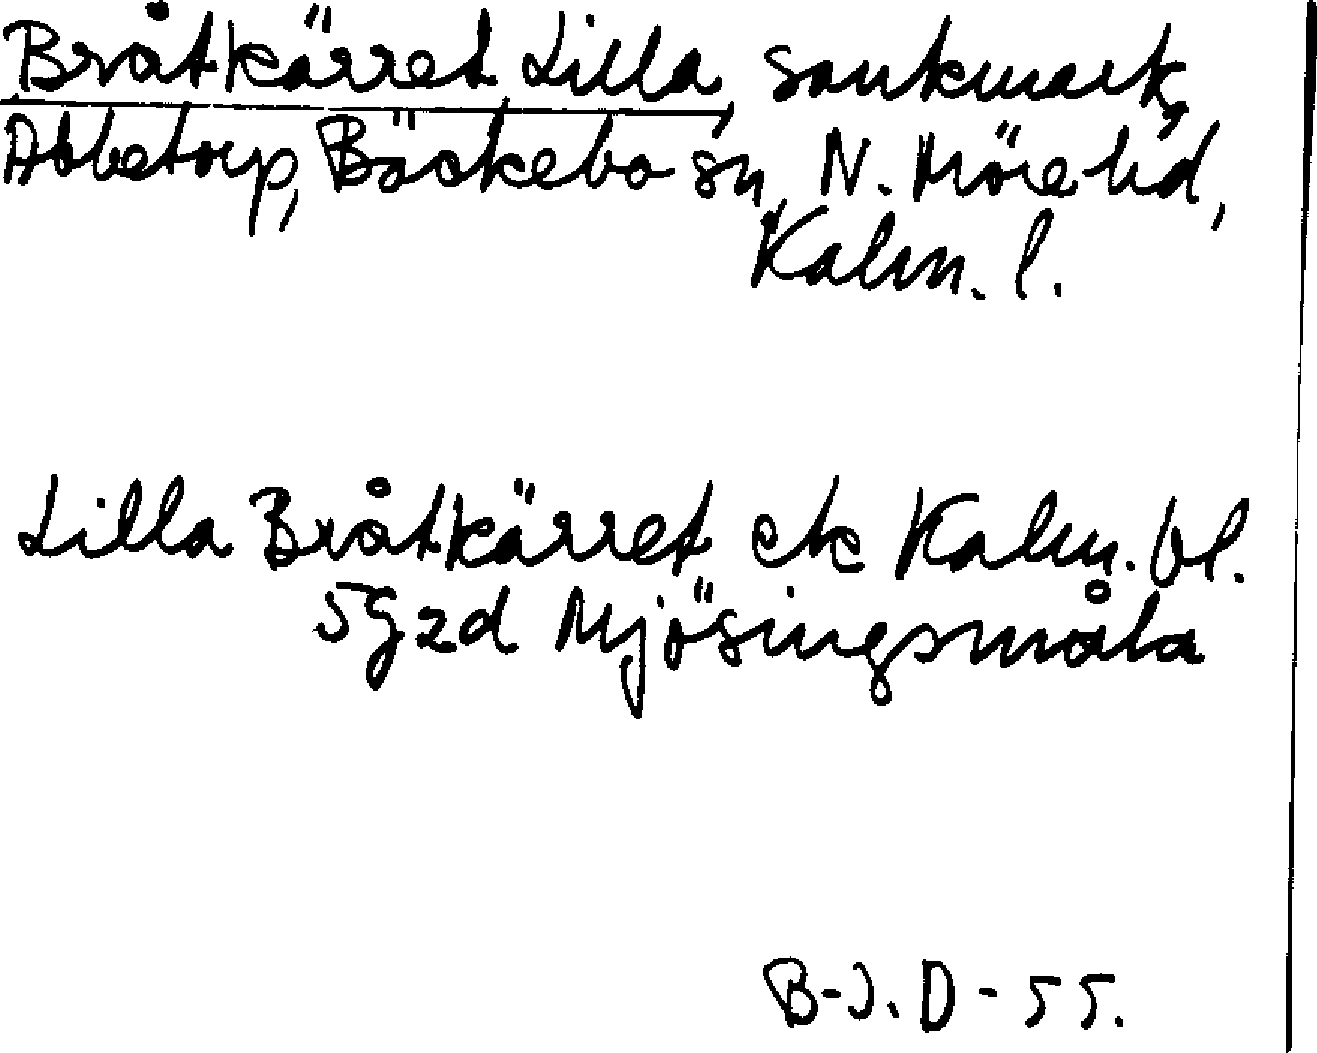 Bråtkärret Lilla, sankmark,
Abbetorp, Bäckebo sn, N. Möre hd,
Kalm. l.
Lilla Bråtkärret ek Kalm. bl.
5g2d Mjösingsmåla
B-J. D - 55.